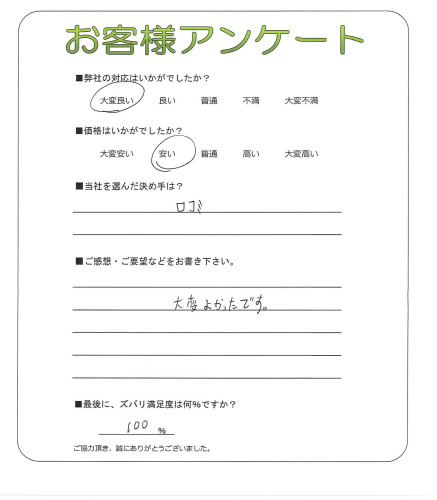 お客様アンケート
■弊社の対応はいかがでしたか？
大変良い 良い 普通 不満 大変不満
■価格はいかがでしたか？
大変安い 安い 普通 高い 大変高い
■当社を選んだ決め手は？
口コミ
■ご感想・ご要望などをお書き下さい。
大変よかったです。
■最後に、ズバリ満足度は何％ですか？
100 ％
ご協力頂き、誠にありがとうございました。